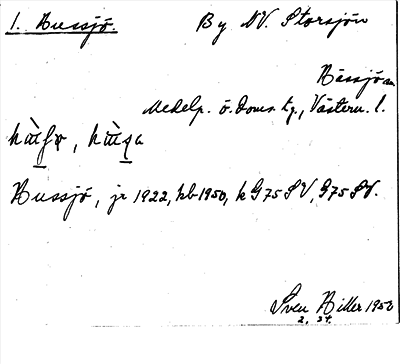 1. Hussjö. By NV. Storsjön
Hässjö sn.
Medelp. ö. doms. tg., Västern. l.
Hussjö, jr 1922, kb 1950, k G75SV, G75SV.
Sven Hiller 1950
2. 24.